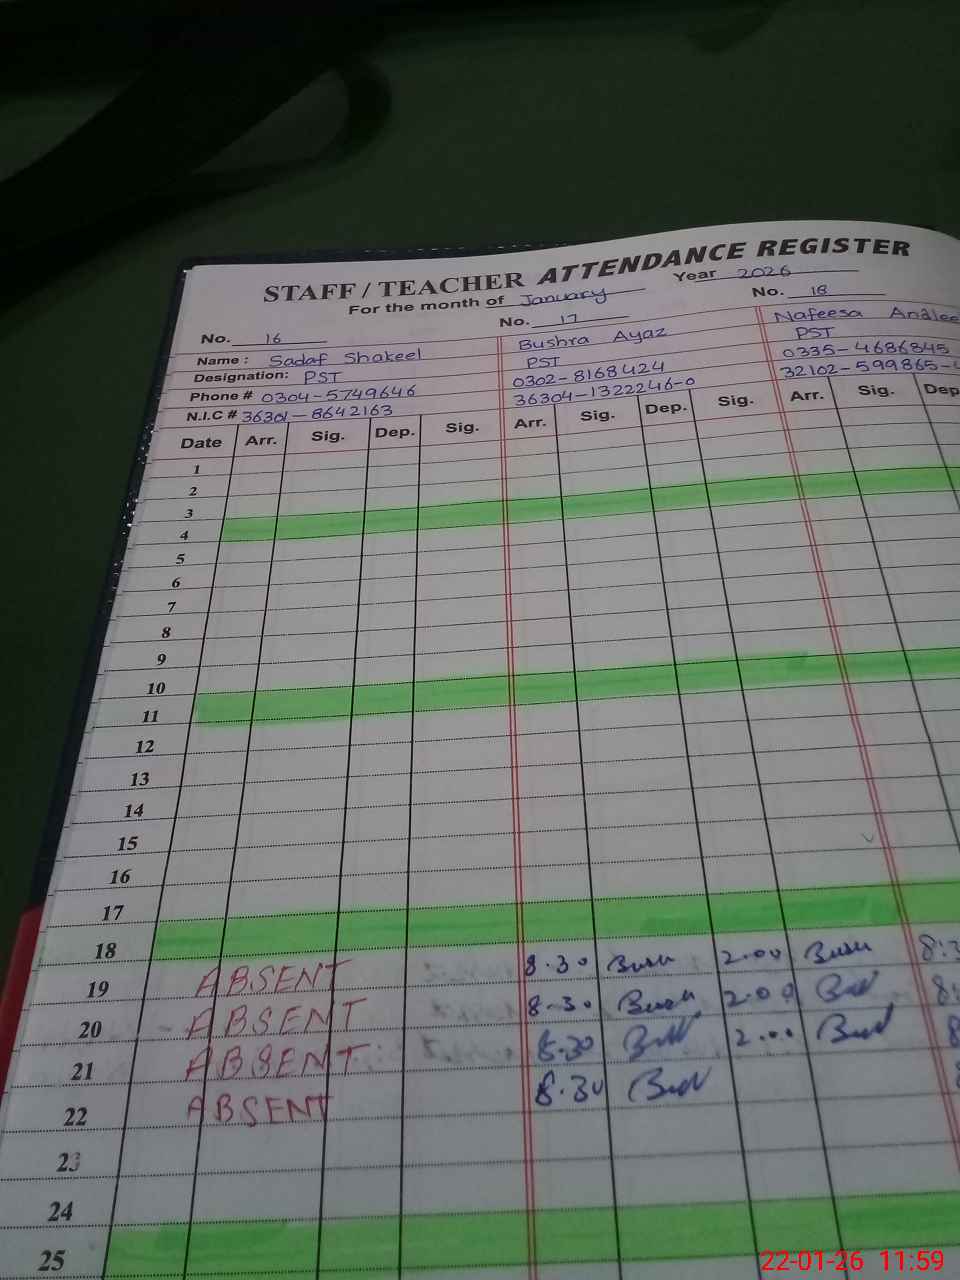 STAFF / TEACHER ATTENDANCE REGISTER
For the month of January Year 2026
No. 16 No. 17 No. 18
Name : Sadaf Shakeel Bushra Ayaz Nafeesa
Designation: PST PST PST
Phone # 0304-5749646 0302-8168424 0335-4686845
N.I.C # 36301-8642163 36304-1322246-0 32102-599865-4
Date Arr. Sig. Dep. Sig. Arr. Sig. Dep. Sig. Arr. Sig. Dep
1
2
3
4
5
6
7
8
9
10
11
12
13
14
15
16
17
18
19 ABSENT 8.30 2.00 8:3
20 ABSENT 8.30 2.00 8
21 ABSENT 8.30 2.00 8
22 ABSENT 8.30
23
24
25
22-01-26 11:59